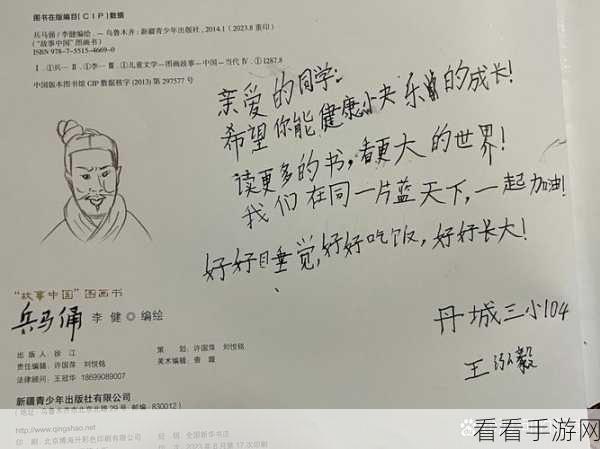 图书在版编目(CIP)数据
兵马俑/李健编绘. — 乌鲁木齐:新疆青少年出版社,2014.1(2023.8重印)
("故事中国"图画书)
ISBN 978-7-5515-4669-0
Ⅰ.①兵… Ⅱ.①李… Ⅲ.①儿童文学—图画故事—中国—当代 Ⅳ.①I287.8
中国版本图书馆CIP数据核字(2013)第297577号
亲爱的同学:
希望你能健康小夬乐的成长!
读更多的书,看更大的世界!
我们在同一片蓝天下,一起加油!
好好睡觉,好好吃饭,好好长大!
丹城三小104
王泓毅
"故事中国"图画书
兵马俑 李健◎编绘
出版人:徐江 策划:许国萍 刘悦铭
责任编辑:许国萍 刘悦铭 美术编辑:查璇
法律顾问:王冠华 18699089007
新疆青少年出版社有限公司
(地址:乌鲁木齐市北京北路29号 邮编:830012)
http://www.qingshao.net
印刷:北京博海升彩色印刷有限公司 经销:全国新华书店
2023年8月第17次印刷
看看手游网